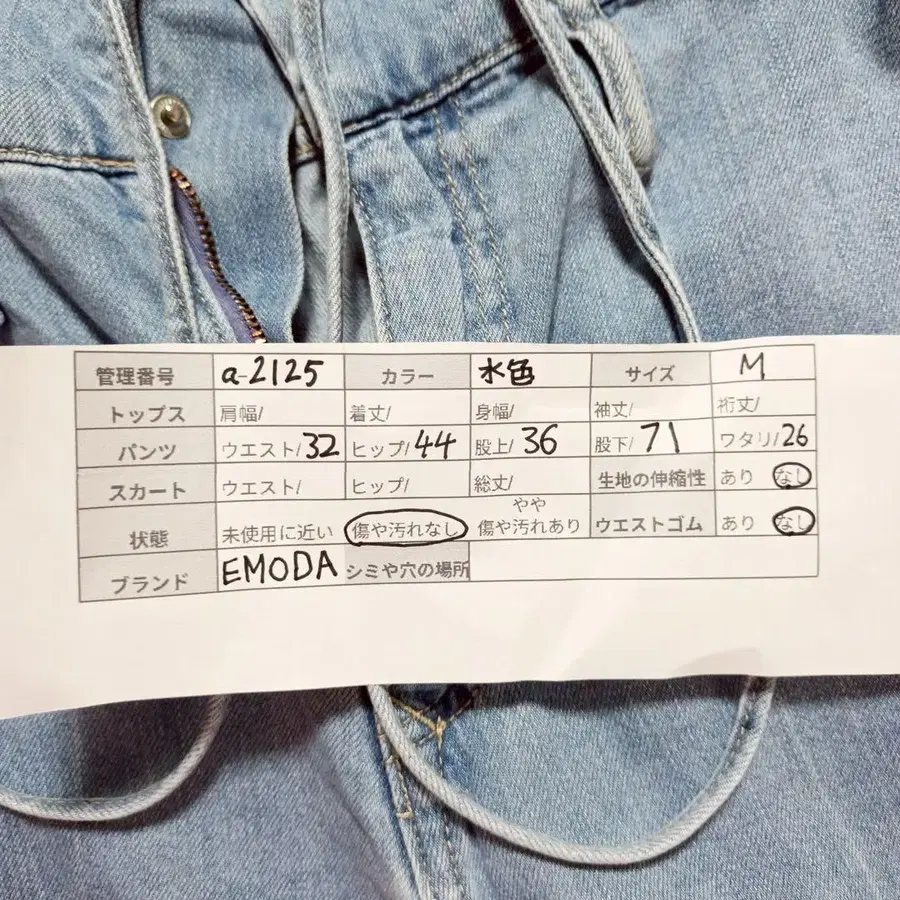 管理番号 a-2125 カラー 水色 サイズ M
トップス 肩幅/ 着丈/ 身幅/ 袖丈/ 裄丈/
パンツ ウエスト/32 ヒップ/44 股上/36 股下/71 ワタリ/26
スカート ウエスト/ ヒップ/ 総丈/ 生地の伸縮性 あり なし
状態 未使用に近い 傷や汚れなし やや傷や汚れあり ウエストゴム あり なし
ブランド EMODA シミや穴の場所